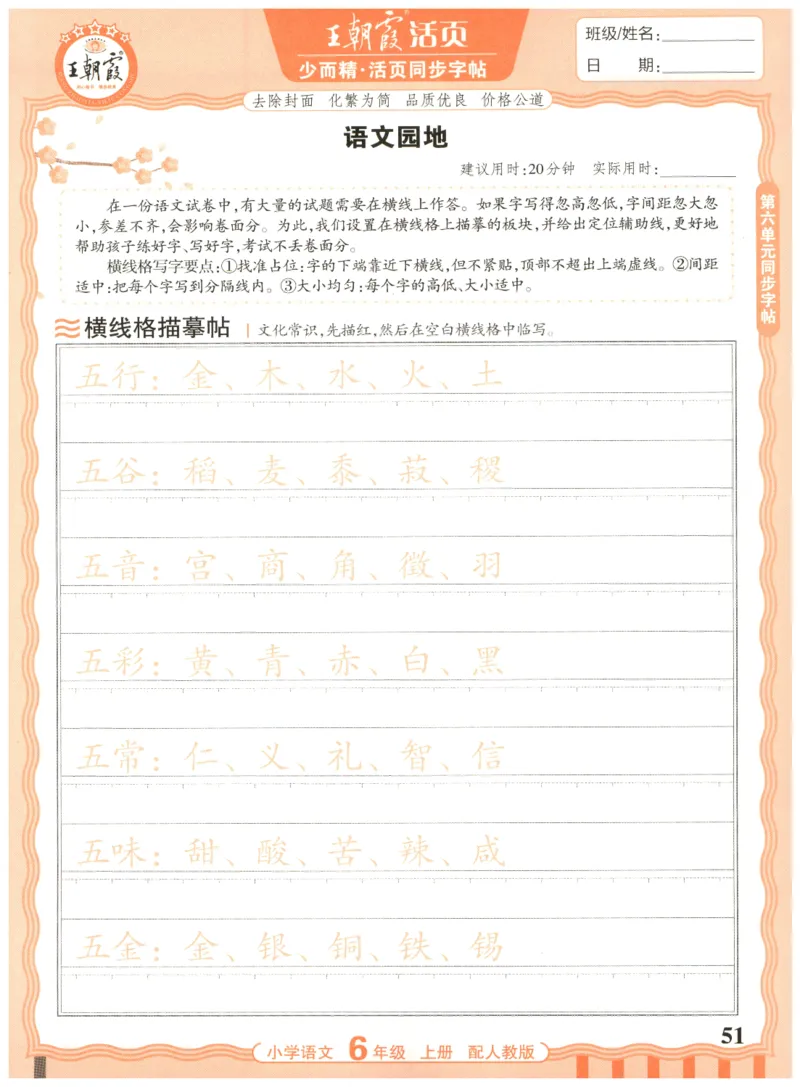 王朝霞
王朝霞活页
少而精·活页同步字帖
班级/姓名:
日 期:
去除封面 化繁为简 品质优良 价格公道
语文园地
建议用时:20分钟 实际用时:
在一份语文试卷中,有大量的试题需要在横线上作答。如果字写得忽高忽低,字间距忽大忽
小,参差不齐,会影响卷面分。为此,我们设置在横线格上描摹的板块,并给出定位辅助线,更好地
帮助孩子练好字、写好字,考试不丢卷面分。
横线格写字要点:①找准占位:字的下端靠近下横线,但不紧贴,顶部不超出上端虚线。②间距
适中:把每个字写到分隔线内。③大小均匀:每个字的高低、大小适中。
第六单元同步字帖
横线格描摹帖 文化常识,先描红,然后在空白横线格中临写。
五行:金、木、水、火、土
五谷:稻、麦、黍、菽、稷
五音:宫、商、角、徵、羽
五彩:黄、青、赤、白、黑
五常:仁、义、礼、智、信
五味:甜、酸、苦、辣、咸
五金:金、银、铜、铁、锡
51
小学语文 6年级 上册 配人教版